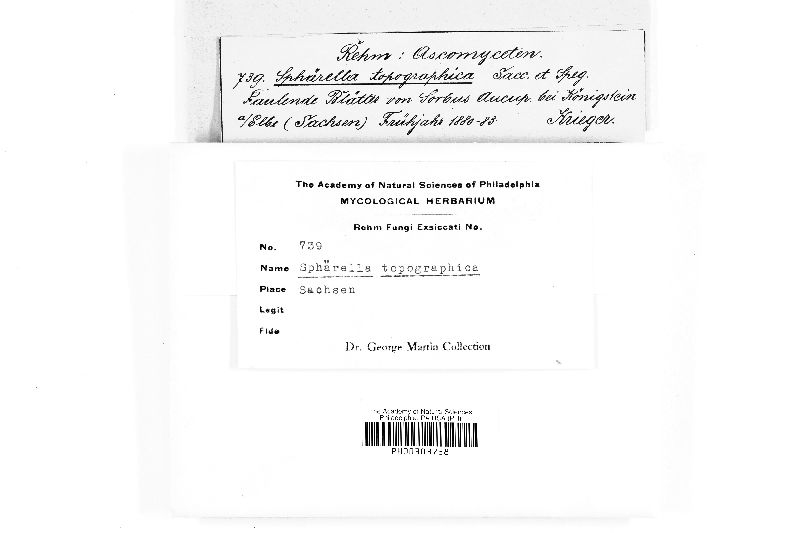 Rehm: Ascomyceten.
739. Sphärella topographica Sacc. et Speg.
Faulende Blätter von Sorbus Aucup. bei Königstein
a/Elbe (Sachsen) Frühjahr 1880-83 Krieger.
The Academy of Natural Sciences of Philadelphia
MYCOLOGICAL HERBARIUM
Rehm Fungi Exsiccati No.
No. 739
Name Sphärella topographica
Place Sachsen
Legit
Fide
Dr. George Martin Collection
The Academy of Natural Sciences
Philadelphia, PA USA (PH)